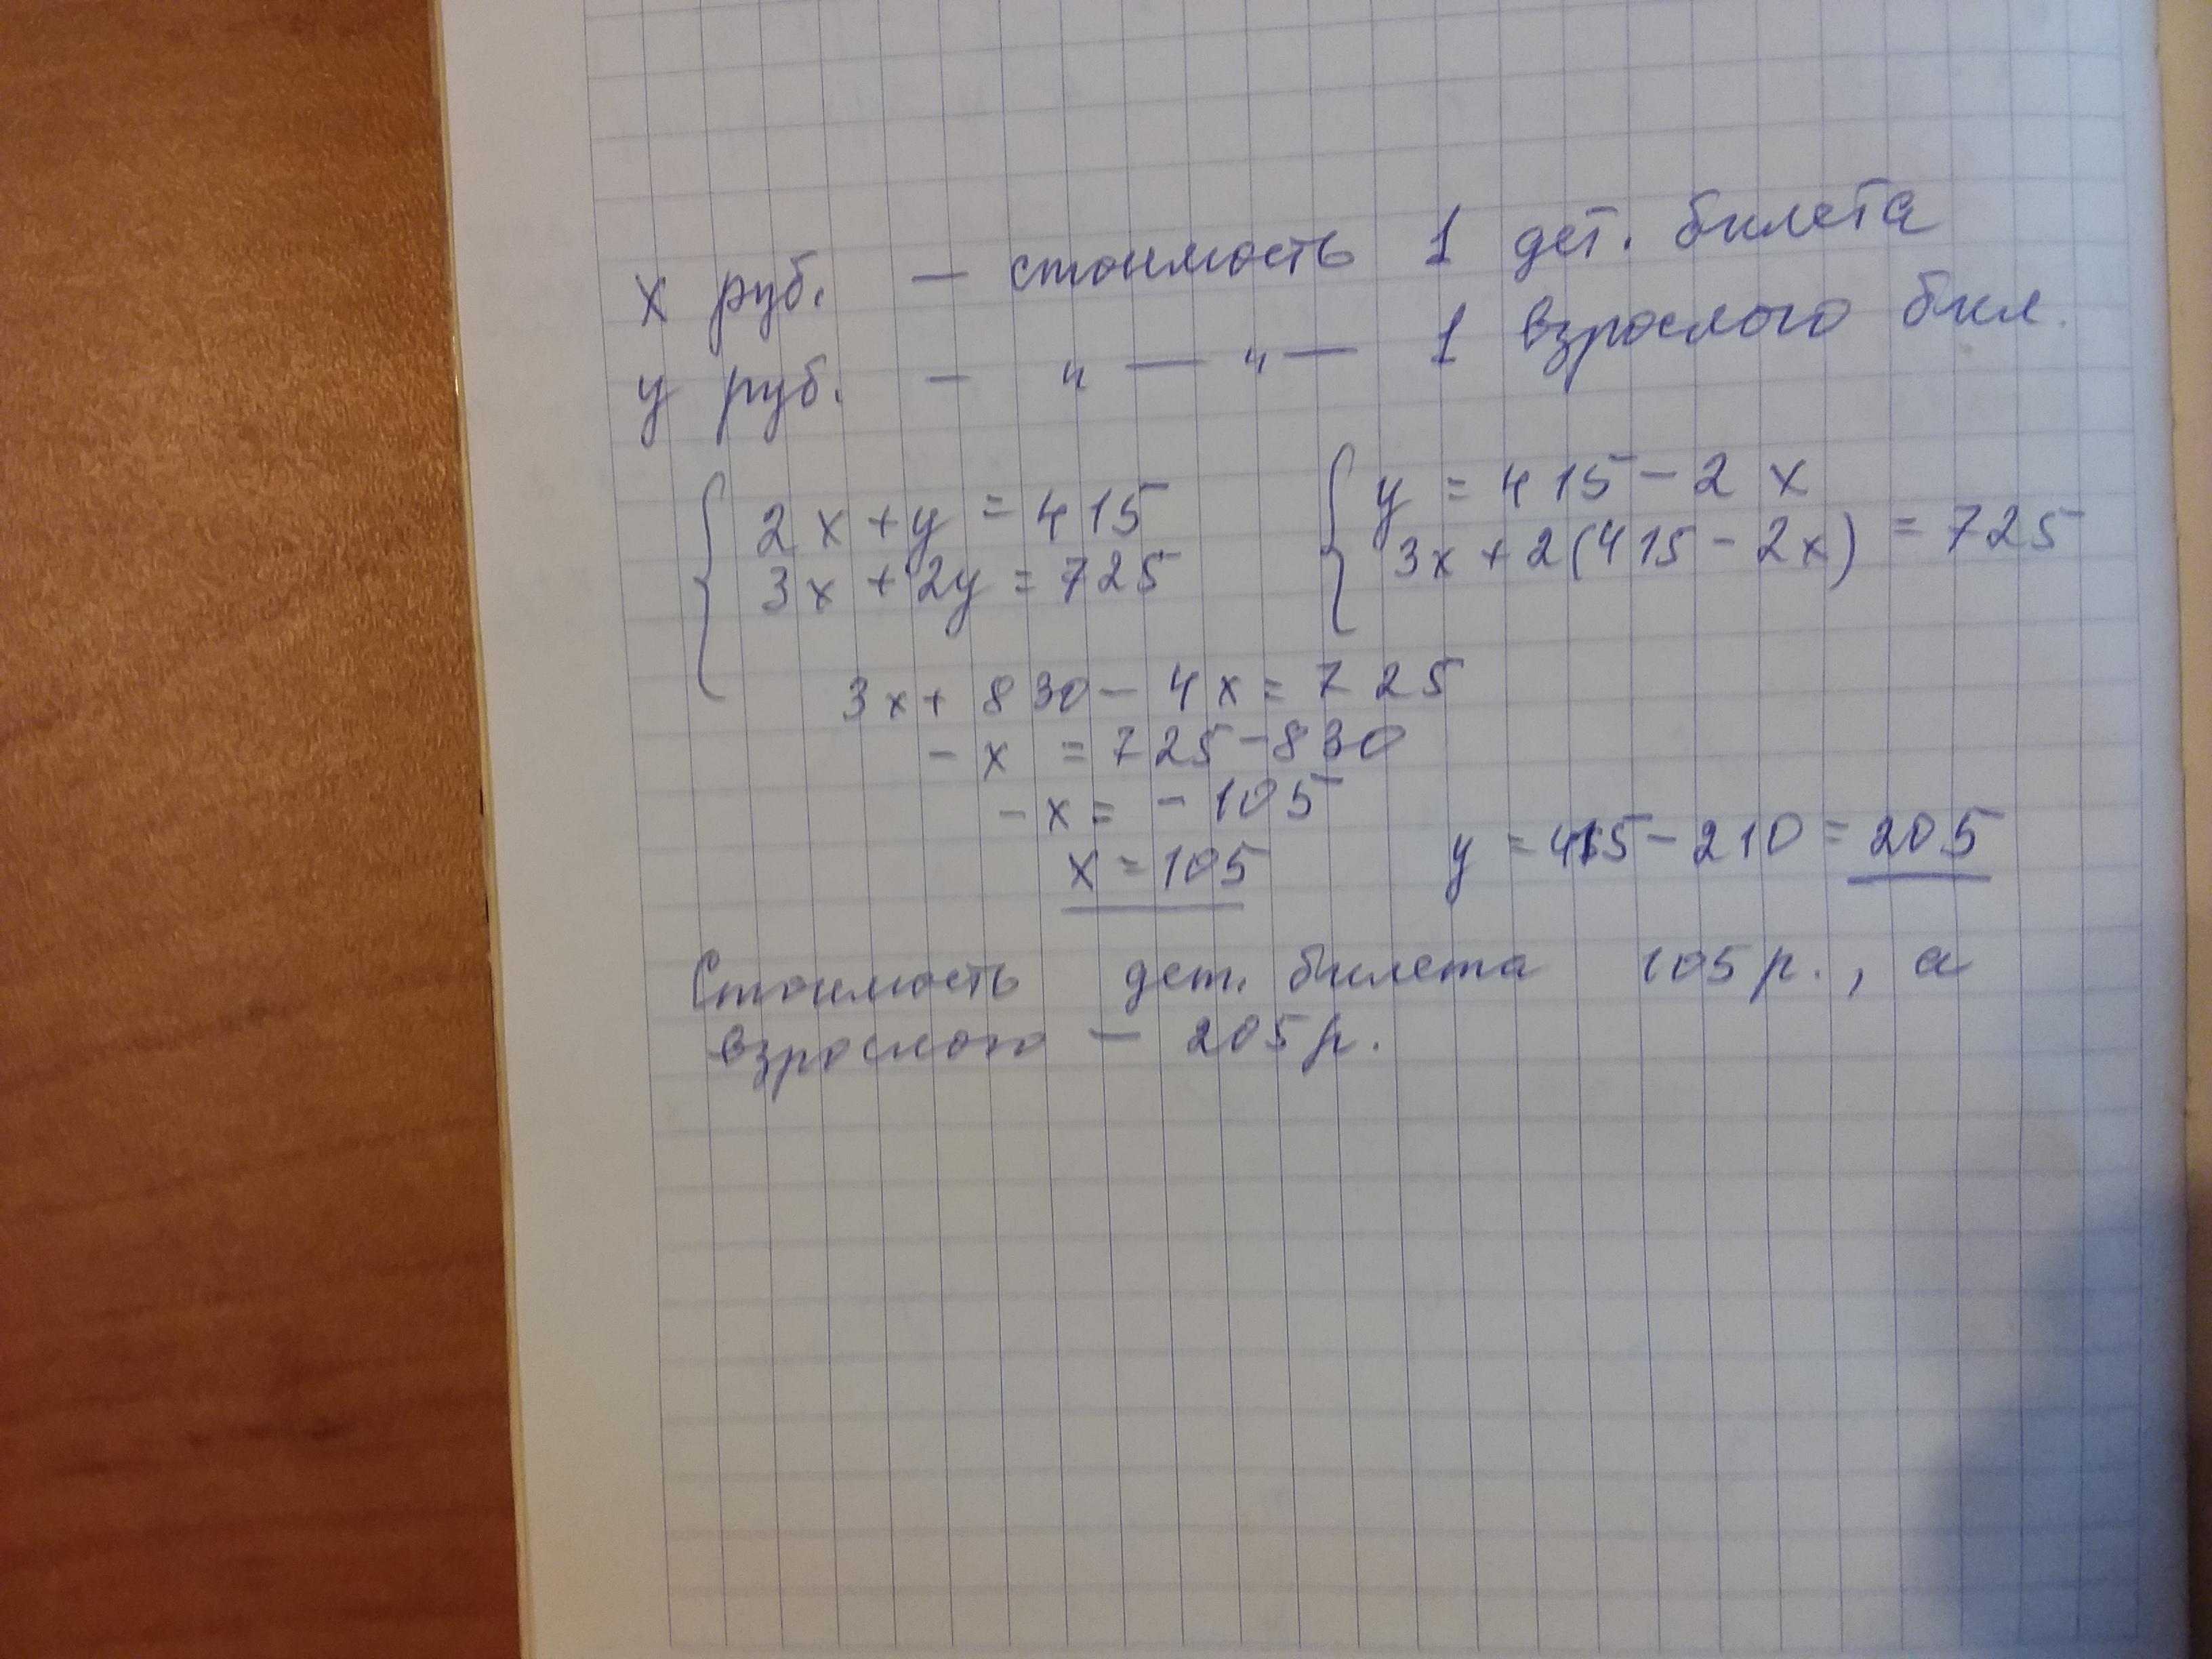 x руб. — стоимость 1 дет. билета
y руб. — " — " — 1 взрослого бил.
{ 2x + y = 415
3x + 2y = 725
{ y = 415 - 2x
3x + 2(415 - 2x) = 725
3x + 830 - 4x = 725
- x = 725 - 830
- x = - 105
x = 105
y = 415 - 210 = 205
Стоимость дет. билета 105 р., а
взрослого — 205 р.